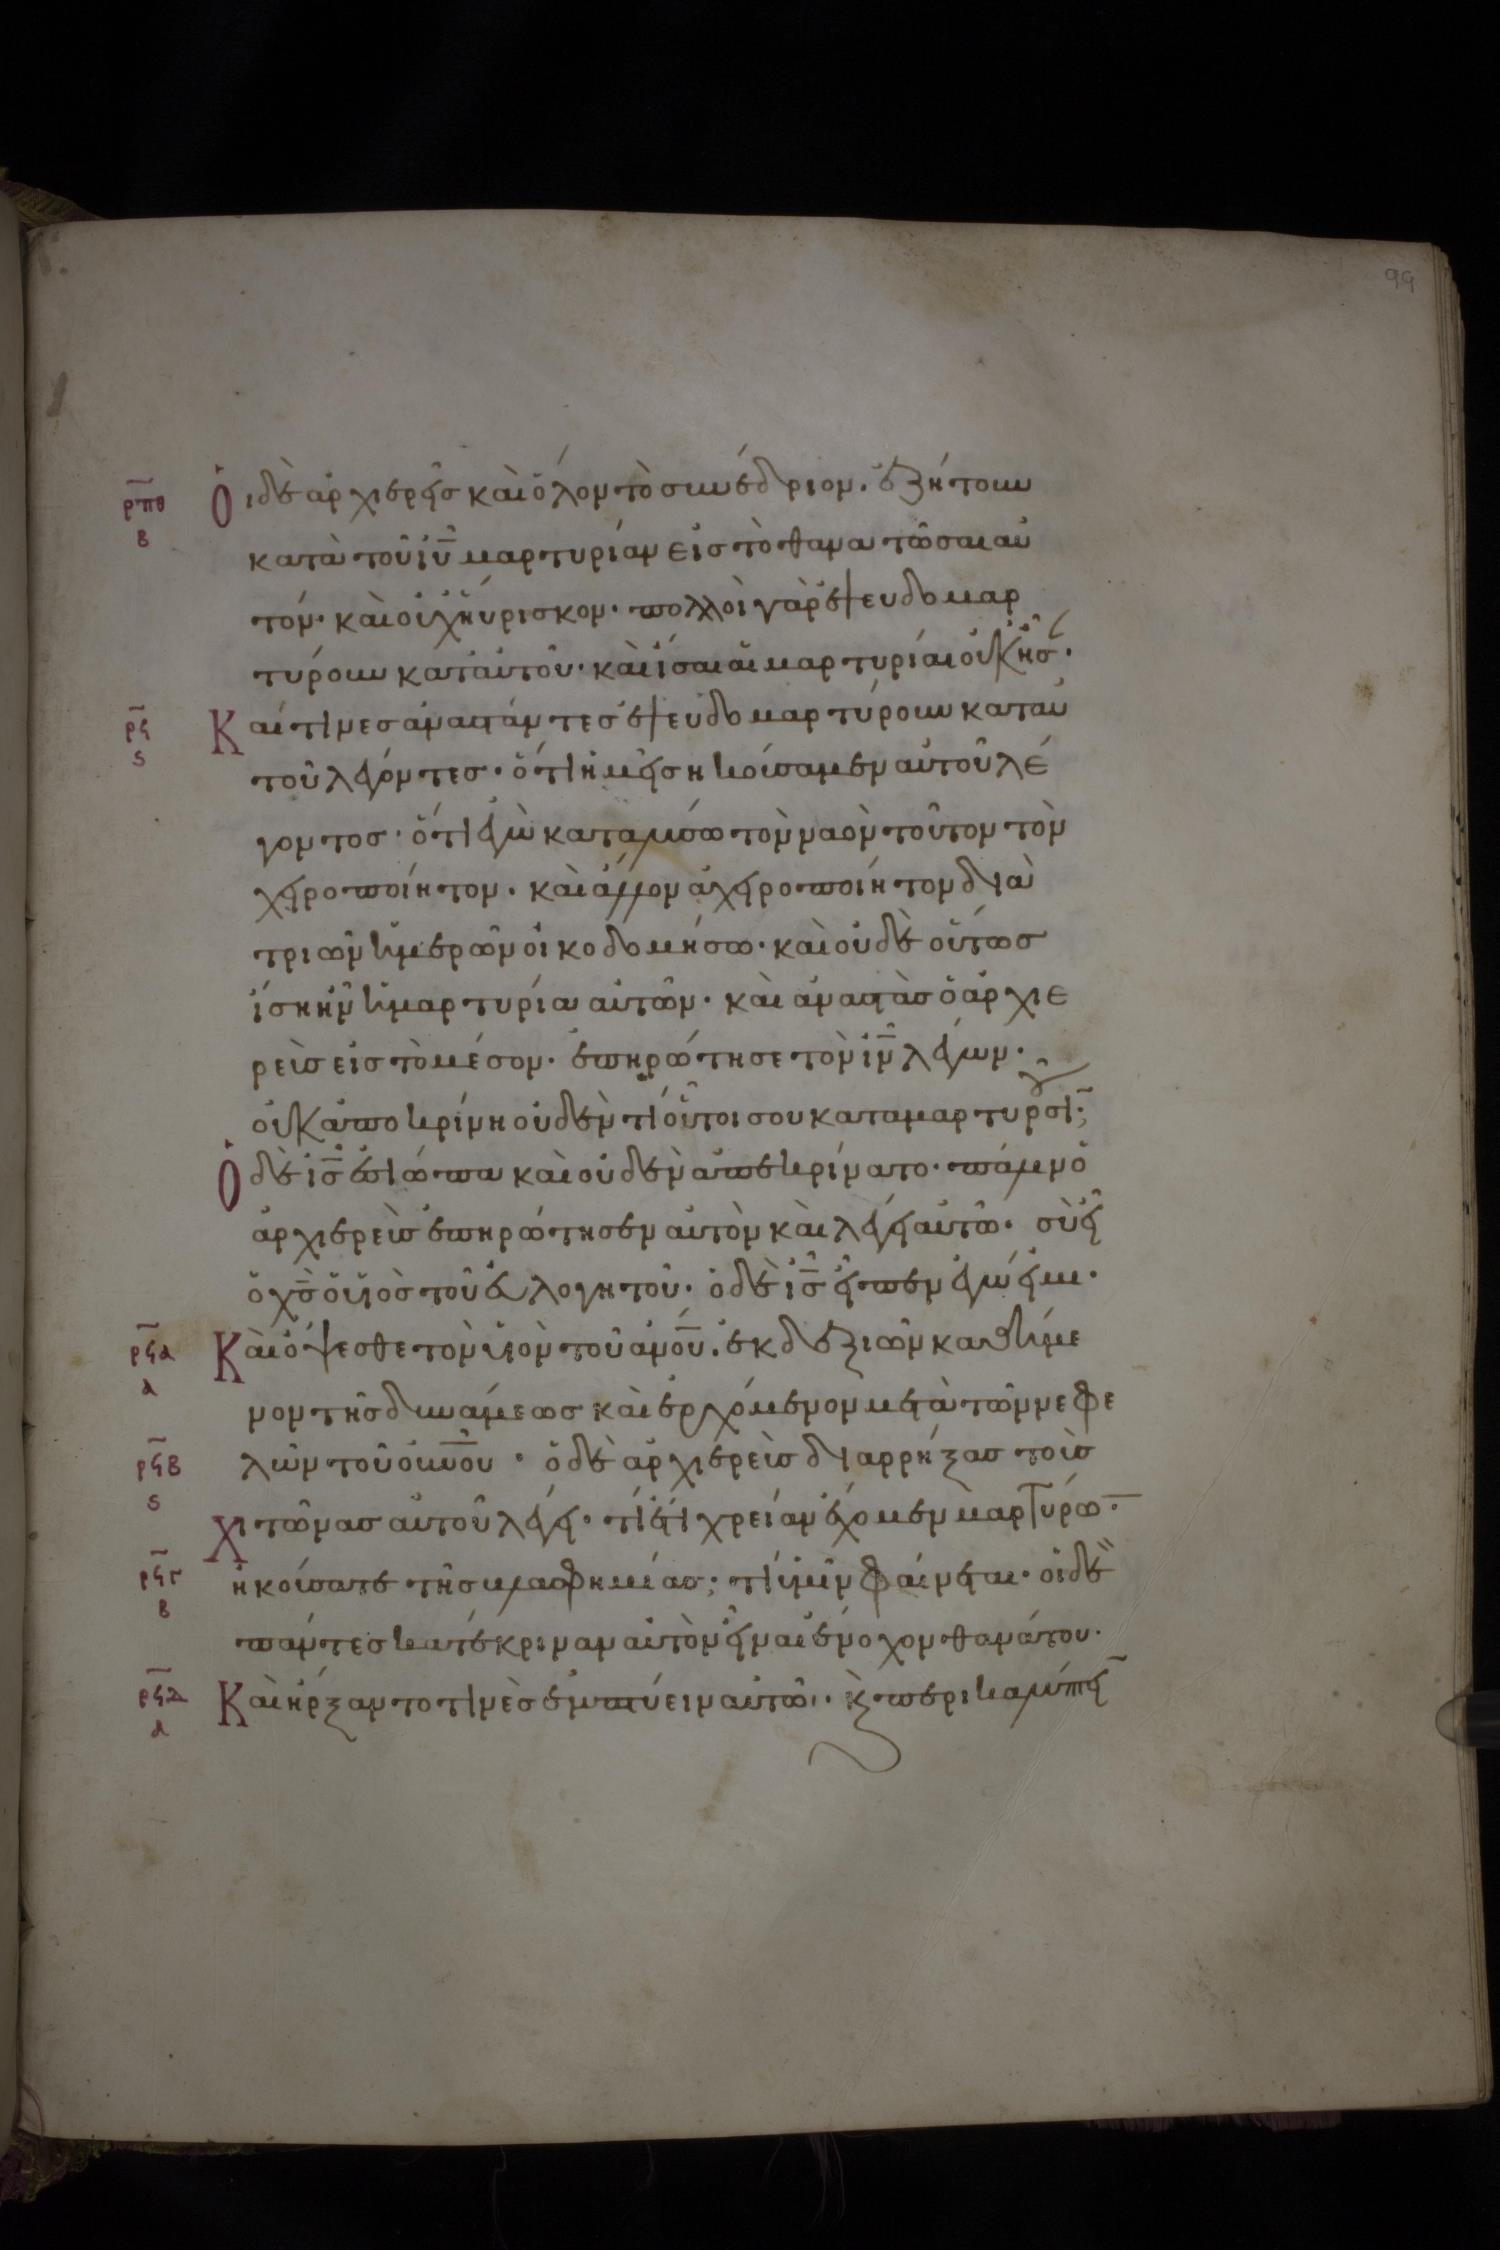 99
ρπθ
β
Ὁι δὲ ἀρχιερεῖς καὶ ὅλον τὸ συνέδριον. ἐζήτουν
κατὰ τοῦ ἰῦ μαρτυρίαν εἰς τὸ θανατῶσαι αὐ
τόν· καὶ οὐχ ηὕρισκον· πολλοὶ γὰρ ἐψευδομαρ
τύρουν κατ αὐτοῦ· καὶ ἴσαι αἱ μαρτυρίαι οὐκ ἦσ·
ρϟ
ς
Καί τινες ἀναστάντες ἐψευδομαρτύρουν κατ αὐ
τοῦ λέγοντες· ὅτι ἡμεῖς ἠκούσαμεν αὐτοῦ λέ
γοντος· ὅτι ἐγὼ καταλύσω τὸν ναὸν τοῦτον τὸν
χειροποίητον· καὶ ἄλλον ἀχειροποίητον διὰ
τριῶν ἡμερῶν οἰκοδομήσω· καὶ οὐδὲ οὕτως
ἴση ἦν ἡ μαρτυρία αὐτῶν· καὶ ἀναστὰς ὁ ἀρχιε
ρεὺς εἰς τὸ μέσον· ἐπηρώτησε τὸν ἰν λέγων·
οὐκ ἀποκρίνη οὐδὲν τί οὗτοι σου καταμαρτυροῦσι;
Ὁ δὲ ἰς ἐσιώπα καὶ οὐδὲν ἀπεκρίνατο· πάλιν ὁ
ἀρχιερεὺς ἐπηρώτησεν αὐτὸν καὶ λέγει αὐτῶ· σὺ εἶ
ὁ χς ὁ υἱὸς τοῦ εὐλογητοῦ· ὁ δὲ ἰς εἶπεν ἐγώ εἰμι·
ρϟα
α
Καὶ ὄψεσθε τὸν υἱὸν τοῦ ἀνου. ἐκ δεξιῶν καθήμε
νον τῆς δυνάμεως καὶ ἐρχόμενον μετὰ τῶν νεφε
ρϟβ
ς
λῶν τοῦ οὐνου· ὁ δὲ ἀρχιερεὺς διαρρήξας τοὺς
Χιτῶνας αὐτοῦ λέγει· τί ἔτι χρείαν ἔχομεν μαρτύρω·
ρϟγ
β
ἠκούσατε τῆς βλασφημίας; τί ὑμῖν φαίνεται· οἱ δὲ
πάντες κατέκριναν αὐτὸν εἶναι ἔνοχον θανάτου·
ρϟδ
α
Καὶ ἤρξαντο τινὲς ἐμπτύειν αὐτῶ· κ περικαλύπτει